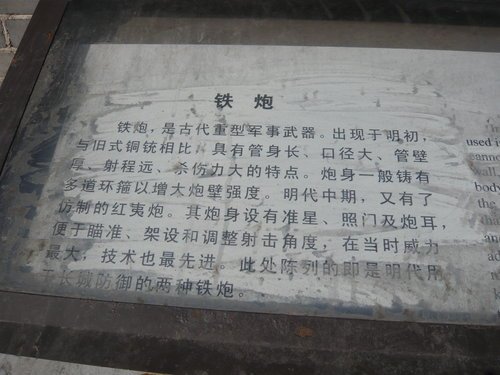 铁 炮
铁炮，是古代重型军事武器。出现于明初，
与旧式铜铳相比，具有管身长、口径大、管壁
厚，射程远、杀伤力大的特点。炮身一般铸有
多道环箍以增大炮壁强度。明代中期，又有了
仿制的红夷炮。其炮身设有准星、照门及炮耳，
便于瞄准、架设和调整射击角度，在当时威力
最大，技术也最先进。此处陈列的即是明代用
于长城防御的两种铁炮。
used i
canno
wall
body
the
the
an
ad